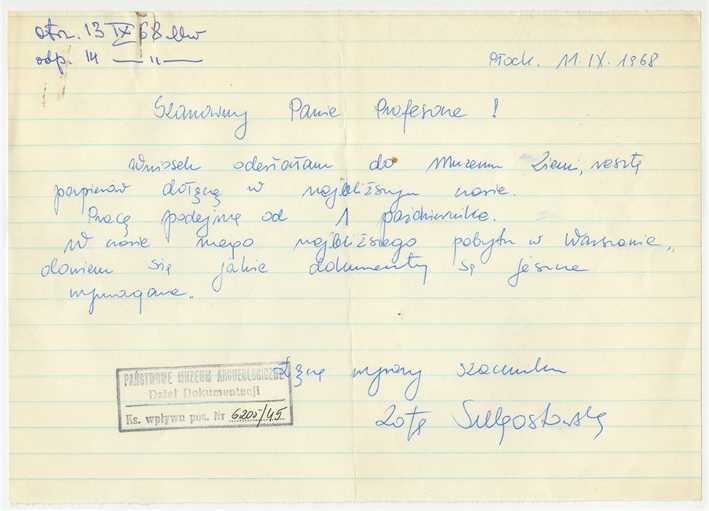 otrz. 13 IX 68
odp. 14 — „ —
Płock. 11.IX.1968
Szanowny Panie Profesorze!
Wniosek odesłałam do Muzeum Ziemi, resztę
papierów dołączę w najbliższym czasie.
Pracę podejmę od 1 października.
W czasie mego najbliższego pobytu w Warszawie,
dowiem się jakie dokumenty są jeszcze
wymagane.
Łączę wyrazy szacunku
Zofia Sulgostowska
PAŃSTWOWE MUZEUM ARCHEOLOGICZNE
Dział Dokumentacji
Ks. wpływu poz. Nr 6200/45